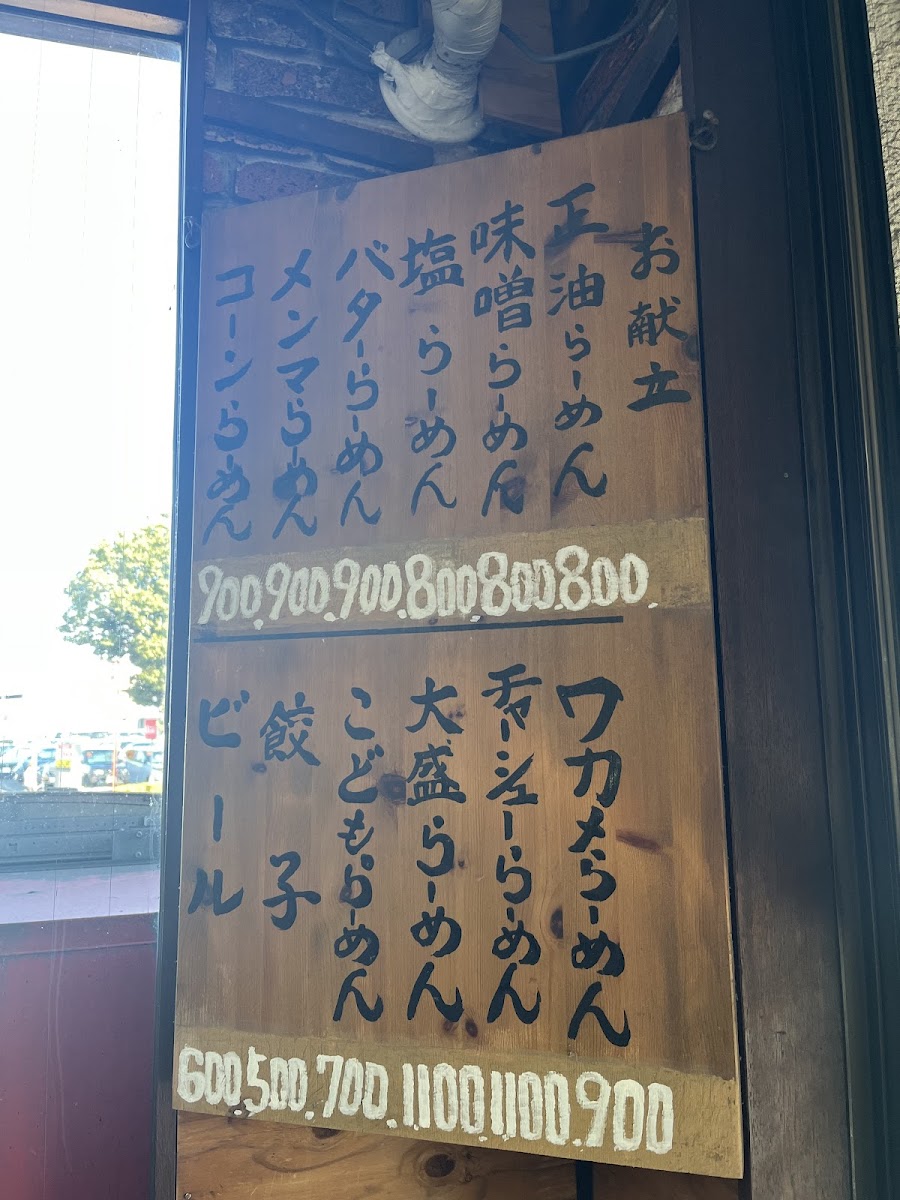 お献立
正油らーめん
味噌らーめん
塩らーめん
バターらーめん
メンマらーめん
コーンらーめん
800.
800.
800
900.
900.
900.
ワカメらーめん
チャーシューらーめん
大盛らーめん
こどもらーめん
餃子
ビール
900
1100.
1100
700.
500.
600